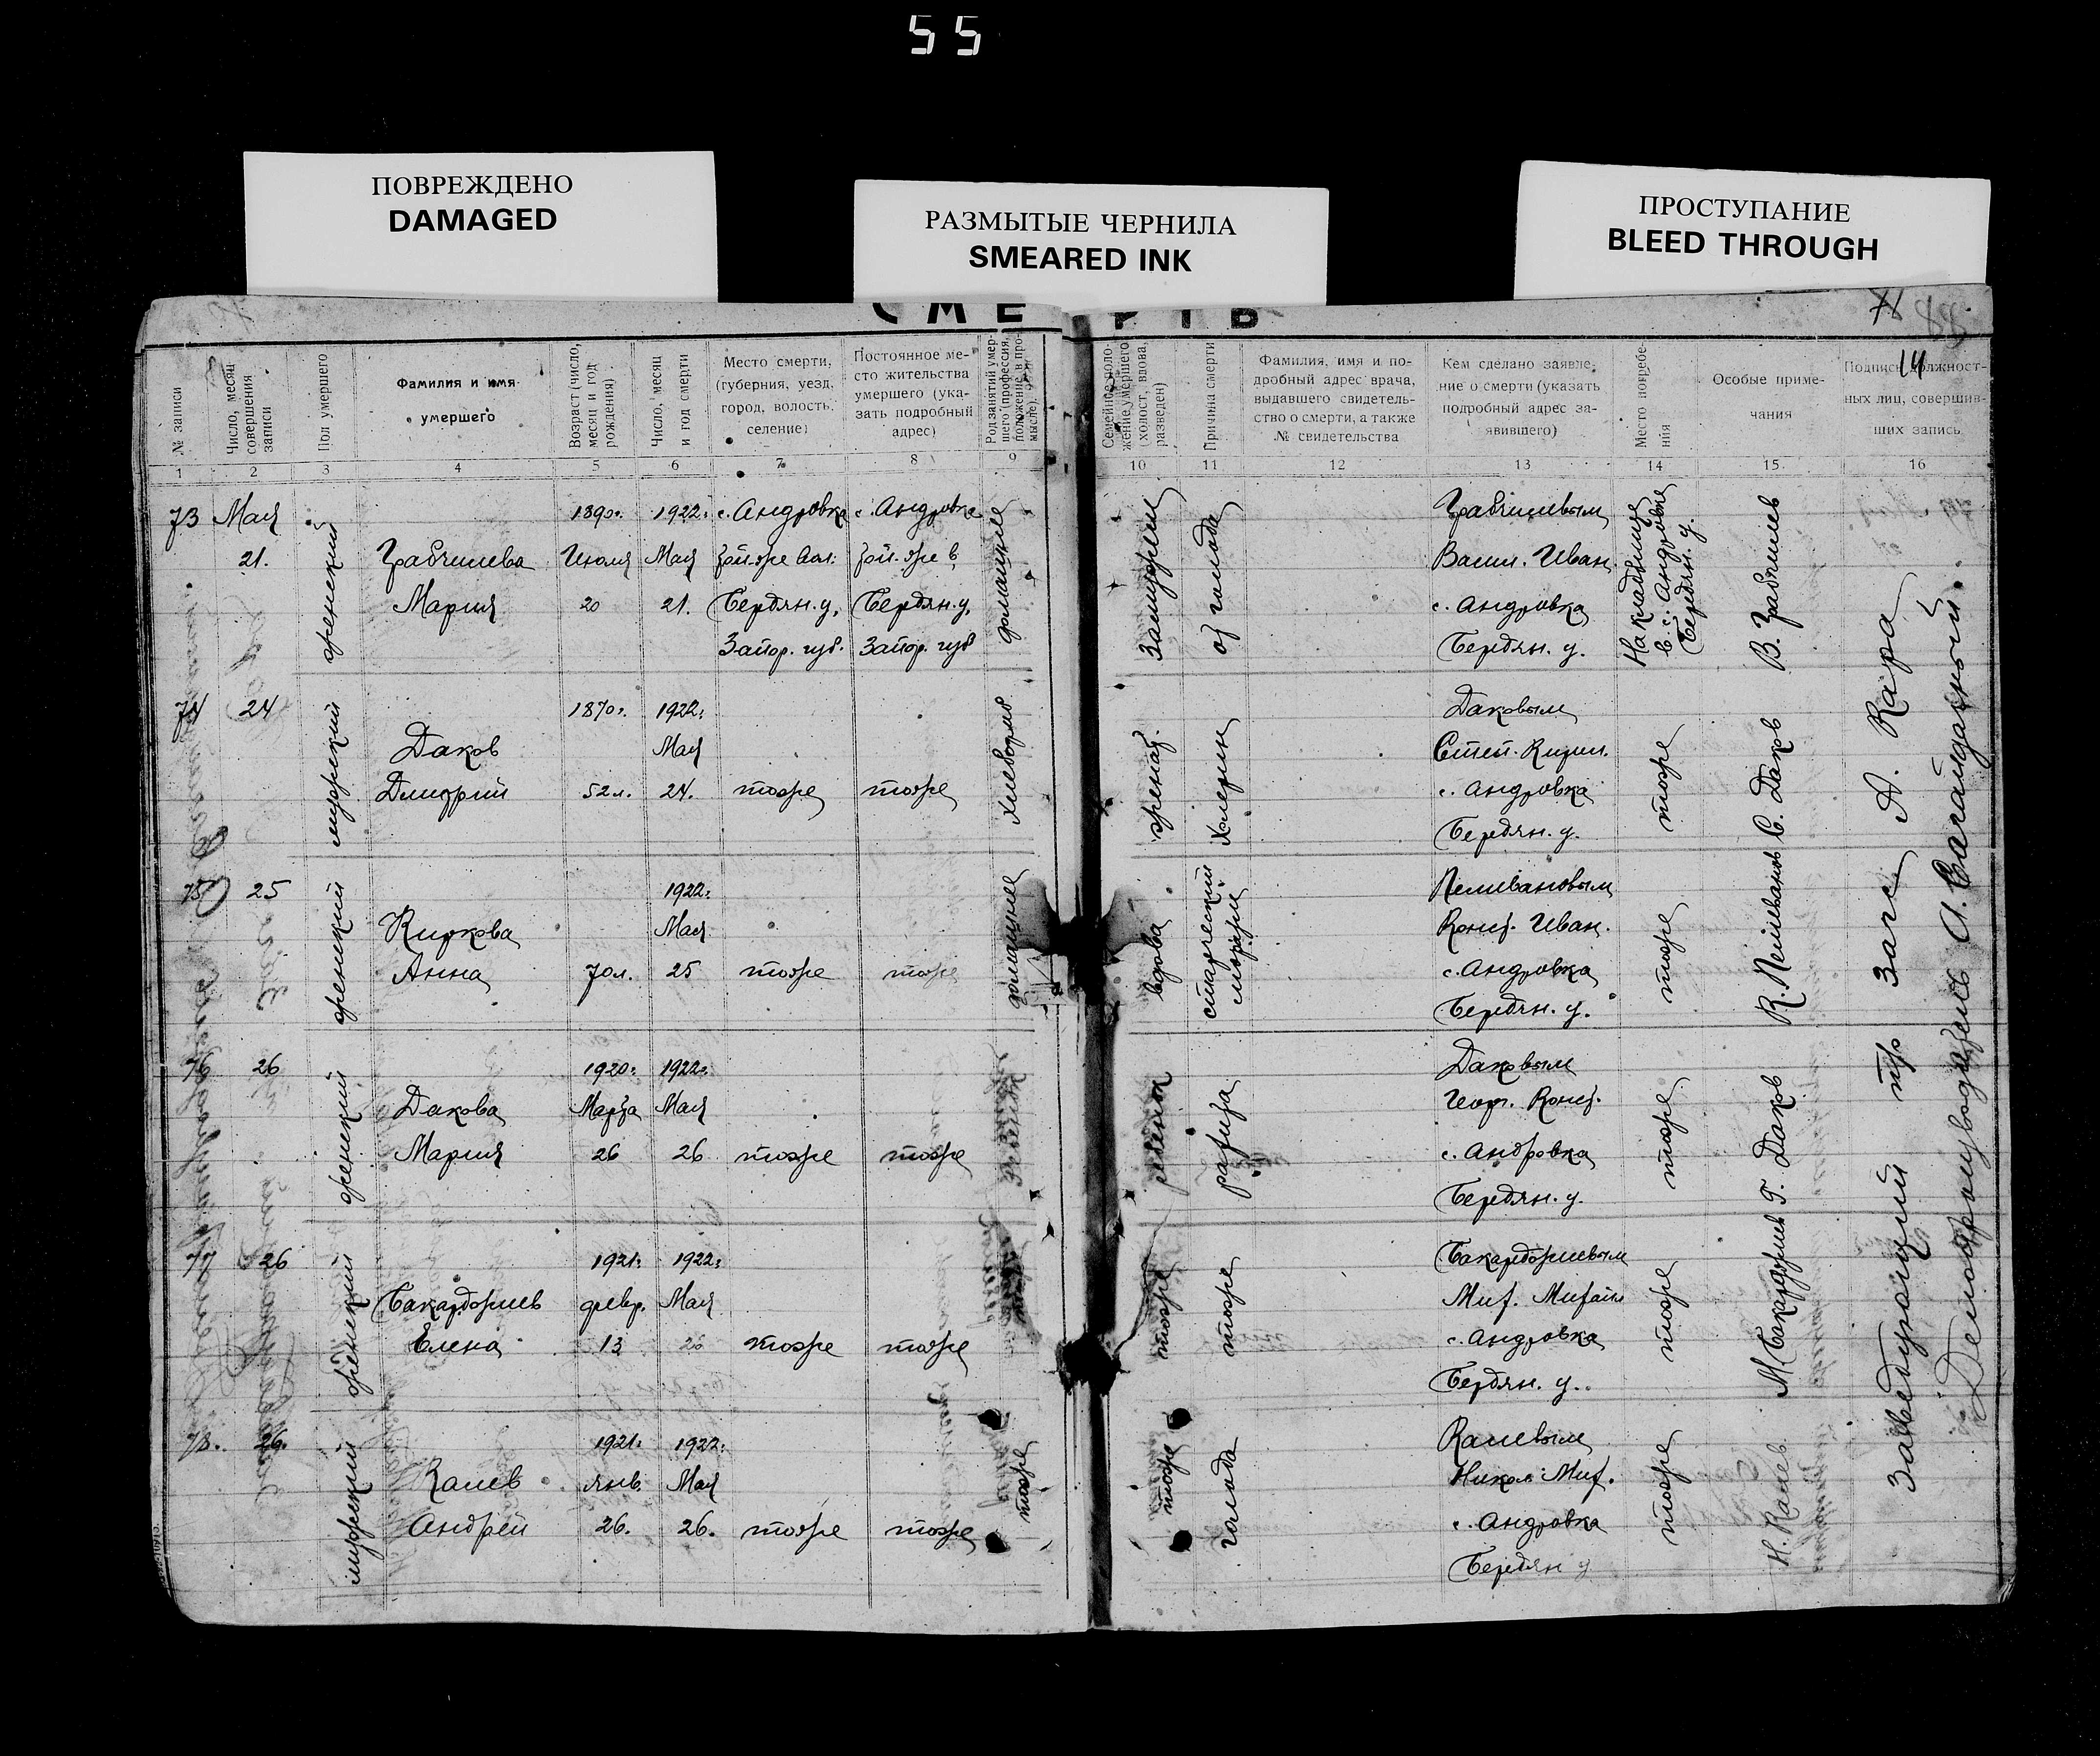 55
ПОВРЕЖДЕНО
DAMAGED
РАЗМЫТЫЕ ЧЕРНИЛА
SMEARED INK
ПРОСТУПАНИЕ
BLEED THROUGH
СМЕРТЬ
71
14
№ записи
Число, месяц совершения записи
Пол умершего
Фамилия и имя умершего
Возраст (число, месяц и год рождения)
Число, месяц и год смерти
Место смерти, (губерния, уезд, город, волость, селение)
Постоянное место жительства умершего (указать подробный адрес)
Род занятий умершего (профессия, положение в промысле)
Семейное положение умершего (холост, вдова, разведен)
Причина смерти
Фамилия, имя и подробный адрес врача, выдавшего свидетельство о смерти, а также № свидетельства
Кем сделано заявление о смерти (указать подробный адрес заявившего)
Место погребения
Особые примечания
Подписи должностных лиц, совершивших запись
1 2 3 4 5 6 7 8 9 10 11 12 13 14 15 16
73 Мая 21.
женский
Грабчилева
Мария
1890г.
Июля
20
1922г.
Мая
21.
с. Андровка
Бердян. у.
Запор. губ.
с. Андровка
Бердян. у.
Запор. губ
домашнее
Замужем
от голода
Василь. Иван.
с. Андровка
Бердян. у.
На кладбище
в с. Андровке
Бердян. у.
74 24
мужеский
Даков
Дмитрий
1870г.
52 л.
1922г.
Мая
24.
тоже
тоже
Хлевороб
женат.
Холерин
Даковым
Степ. Кирил.
с. Андровка
Бердян. у.
тоже
С. Даков
75 25
женский
Киркова
Анна
70 л.
1922г.
Мая
25
тоже
тоже
домашнее
вдова
старческий
Пеливановым
Конст. Иван.
с. Андровка
Бердян. у.
тоже
К. Пеливанов
76 26
женский
Дакова
Мария
1920г.
Марта
26
1922г.
Мая
26
тоже
тоже
ребенок
рахита
Даковым
Геор. Конст.
с. Андровка
Бердян. у.
тоже
Г. Даков
77 26
женский
Бакарджиев
Елена
1921г.
февр.
13
1922г.
Мая
26
тоже
тоже
тоже
тоже
Бакарджиевым
Мих. Михайл
с. Андровка
Бердян. у.
тоже
М Бакарджиев
78. 26.
мужеский
Калев
Андрей
1921г.
янв.
26.
1922г.
Мая
26.
тоже
тоже
тоже
тоже
голода
Калевым
Никол. Мих.
с. Андровка
Бердян у
тоже
Н. Калев
Заведующий п/о Загс А. Кара
Делопроизводитель